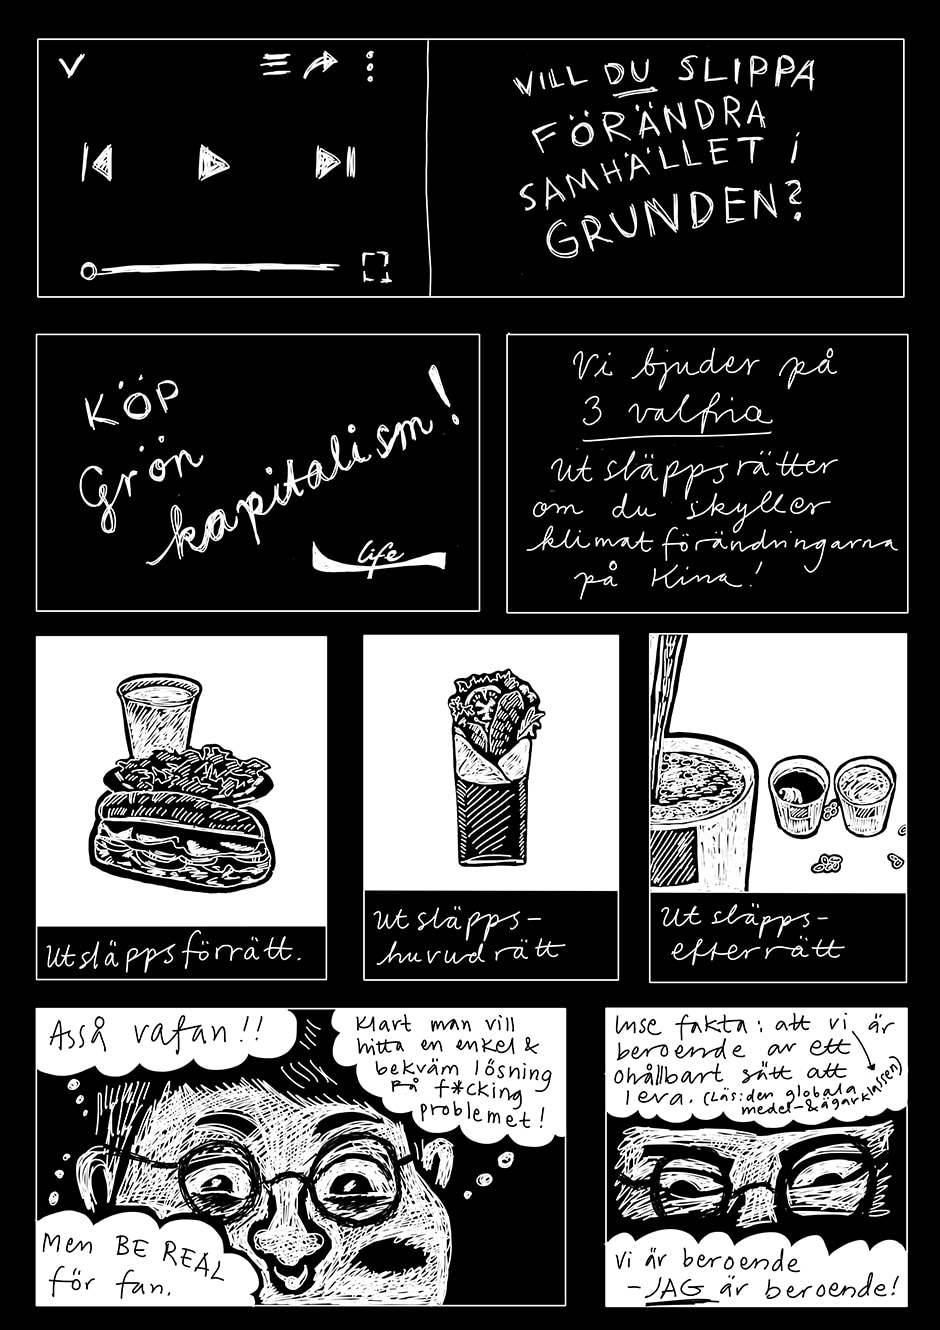 VILL DU SLIPPA
FÖRÄNDRA
SAMHÄLLET I
GRUNDEN?
KÖP
Grön
kapitalism!
life
Vi bjuder på
3 valfria
utsläppsrätter
om du skyller
klimatförändringarna
på Kina!
Utsläppsförrätt.
Utsläpps-
huvudrätt
Utsläpps-
efterrätt
Asså vafan!!
Klart man vill
hitta en enkel &
bekväm lösning
på f*cking
problemet!
Men BE REAL
för fan.
Inse fakta: att vi är
beroende av ett
ohållbart sätt att
leva. (Läs: den globala
medel- & ägarklassen)
Vi är beroende
-JAG är beroende!